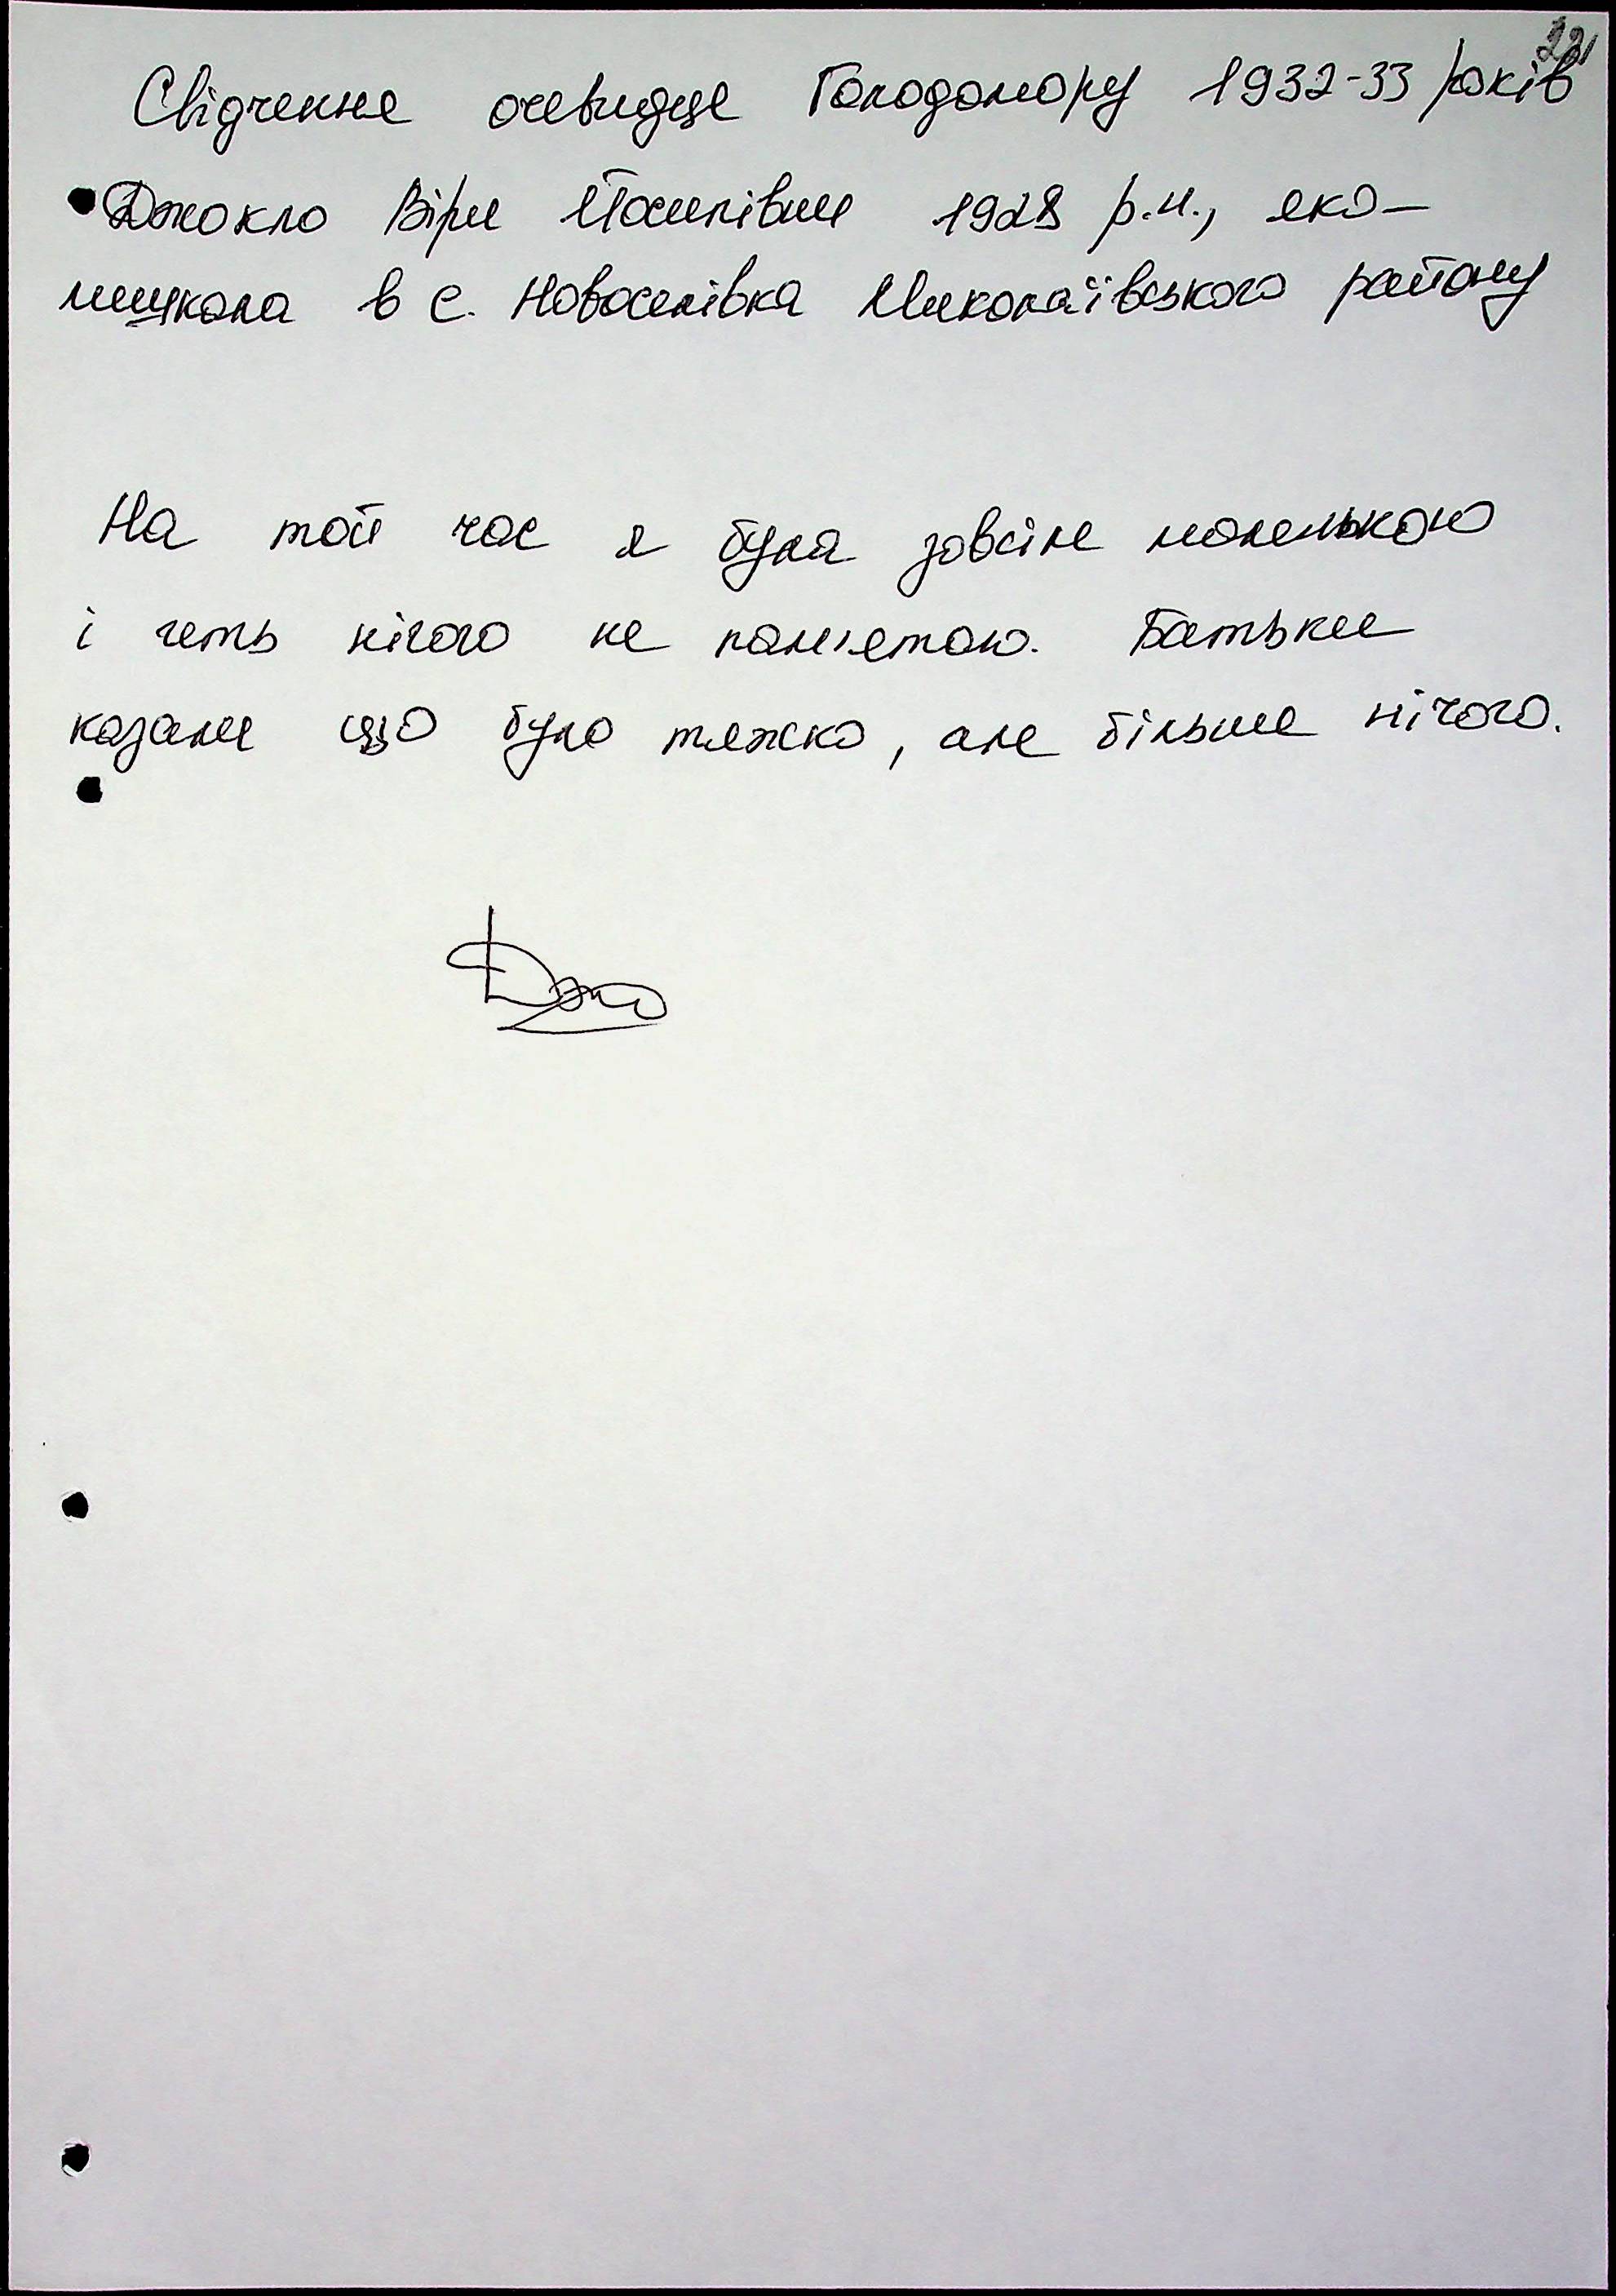 22
Свідчення очевидця Голодомору 1932-33 років
Джокло Віри Йосипівни 1928 р.н., яка –
мешкала в с. Новоселівка Миколаївського району
На той час я була зовсім маленькою
і геть нічого не пам'ятаю. Батьки
казали що було тяжко, але більше нічого.